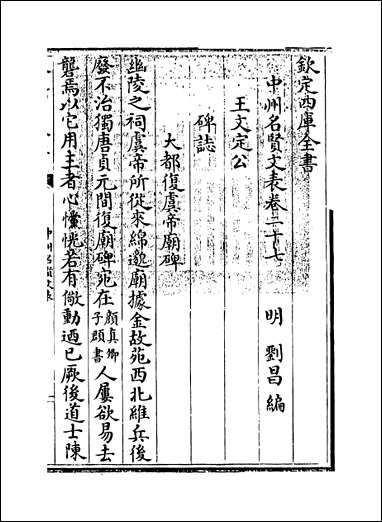 欽定四庫全書
中州名賢文表卷二十七
明 劉昌編
王文定公
碑誌
大都復虞帝廟碑
幽陵之祠虞帝所從來綿邈廟據金故苑西北維兵後
廢不治獨唐貞元間復廟碑宛在顔真卿子頵書人屢欲易去
礱焉以它用主者心懽恍若有儆動迺已厥後道士陳
中州名賢文表